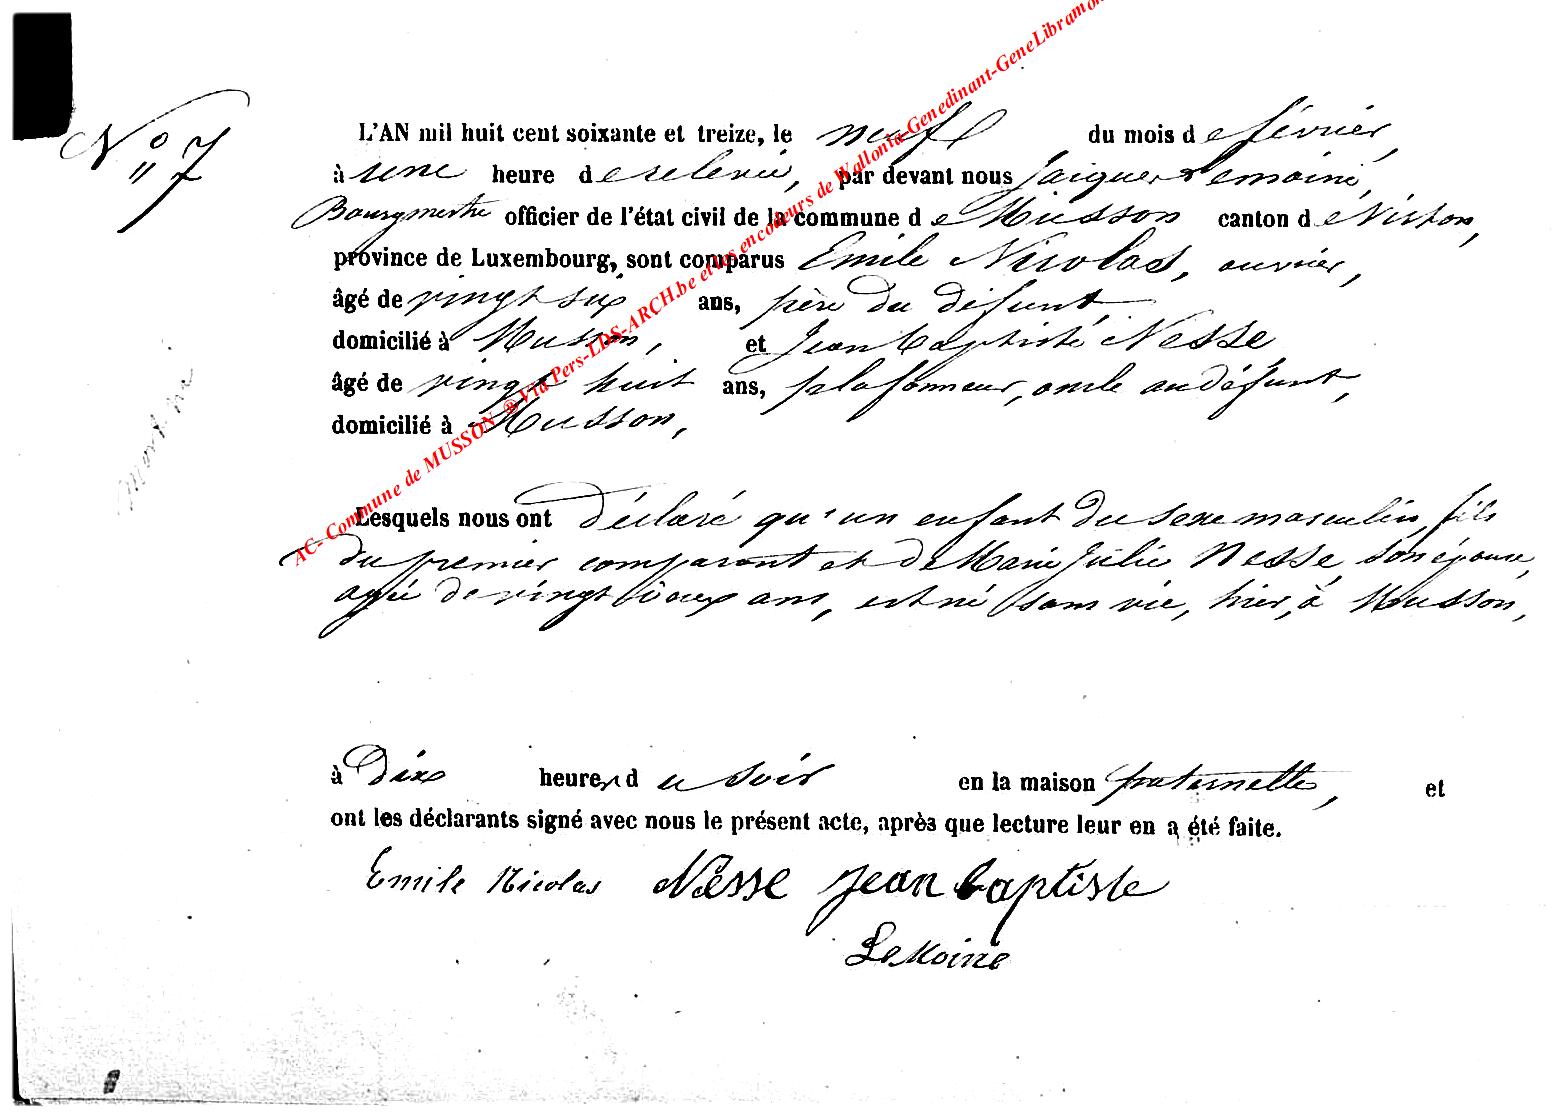 N° 7
L'AN mil huit cent soixante et treize, le neuf du mois de février,
à une heure de relevée, par devant nous Jacques Lemoine,
Bourgmestre officier de l'état civil de la commune de Musson canton de Virton,
province de Luxembourg, sont comparus Emile Nicolas, ouvrier,
âgé de vingt six ans, père du défunt,
domicilié à Musson, et Jean Baptiste Nesse
âgé de vingt huit ans, plafonneur, oncle au défunt,
domicilié à Musson,
mort né
Lesquels nous ont déclaré qu'un enfant du sexe masculin, fils
du premier comparant et de Marie Julie Nesse, son épouse,
agée de vingt deux ans, est né sans vie, hier, à Musson,
à dix heures du soir en la maison paternelle, et
ont les déclarants signé avec nous le présent acte, après que lecture leur en a été faite.
Emile Nicolas Nesse Jean baptiste
Lemoine
AC- Commune de MUSSON ® Via Pers-LDS-ARCH.be et les encodeurs de Wallonia-Genedinant-GeneLibramon